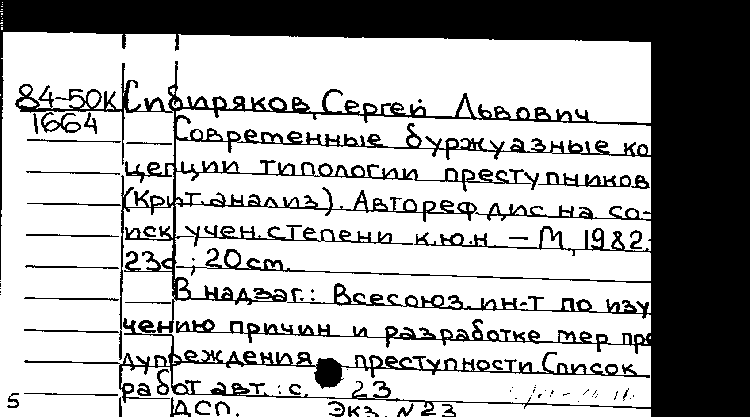 84-50К Сибиряков, Сергей Львович
1664
Современные буржуазные ко
цепции типологии преступников
(Крит.анализ). Автореф.дис на со-
иск учен.степени к.ю.н – М, 1982.
23с ; 20см.
В надзаг.: Всесоюз. ин-т по изу
чению причин и разработке мер пре
дупреждения преступности. Список
работ авт.: с. 23
5 ДСП. Экз. N23